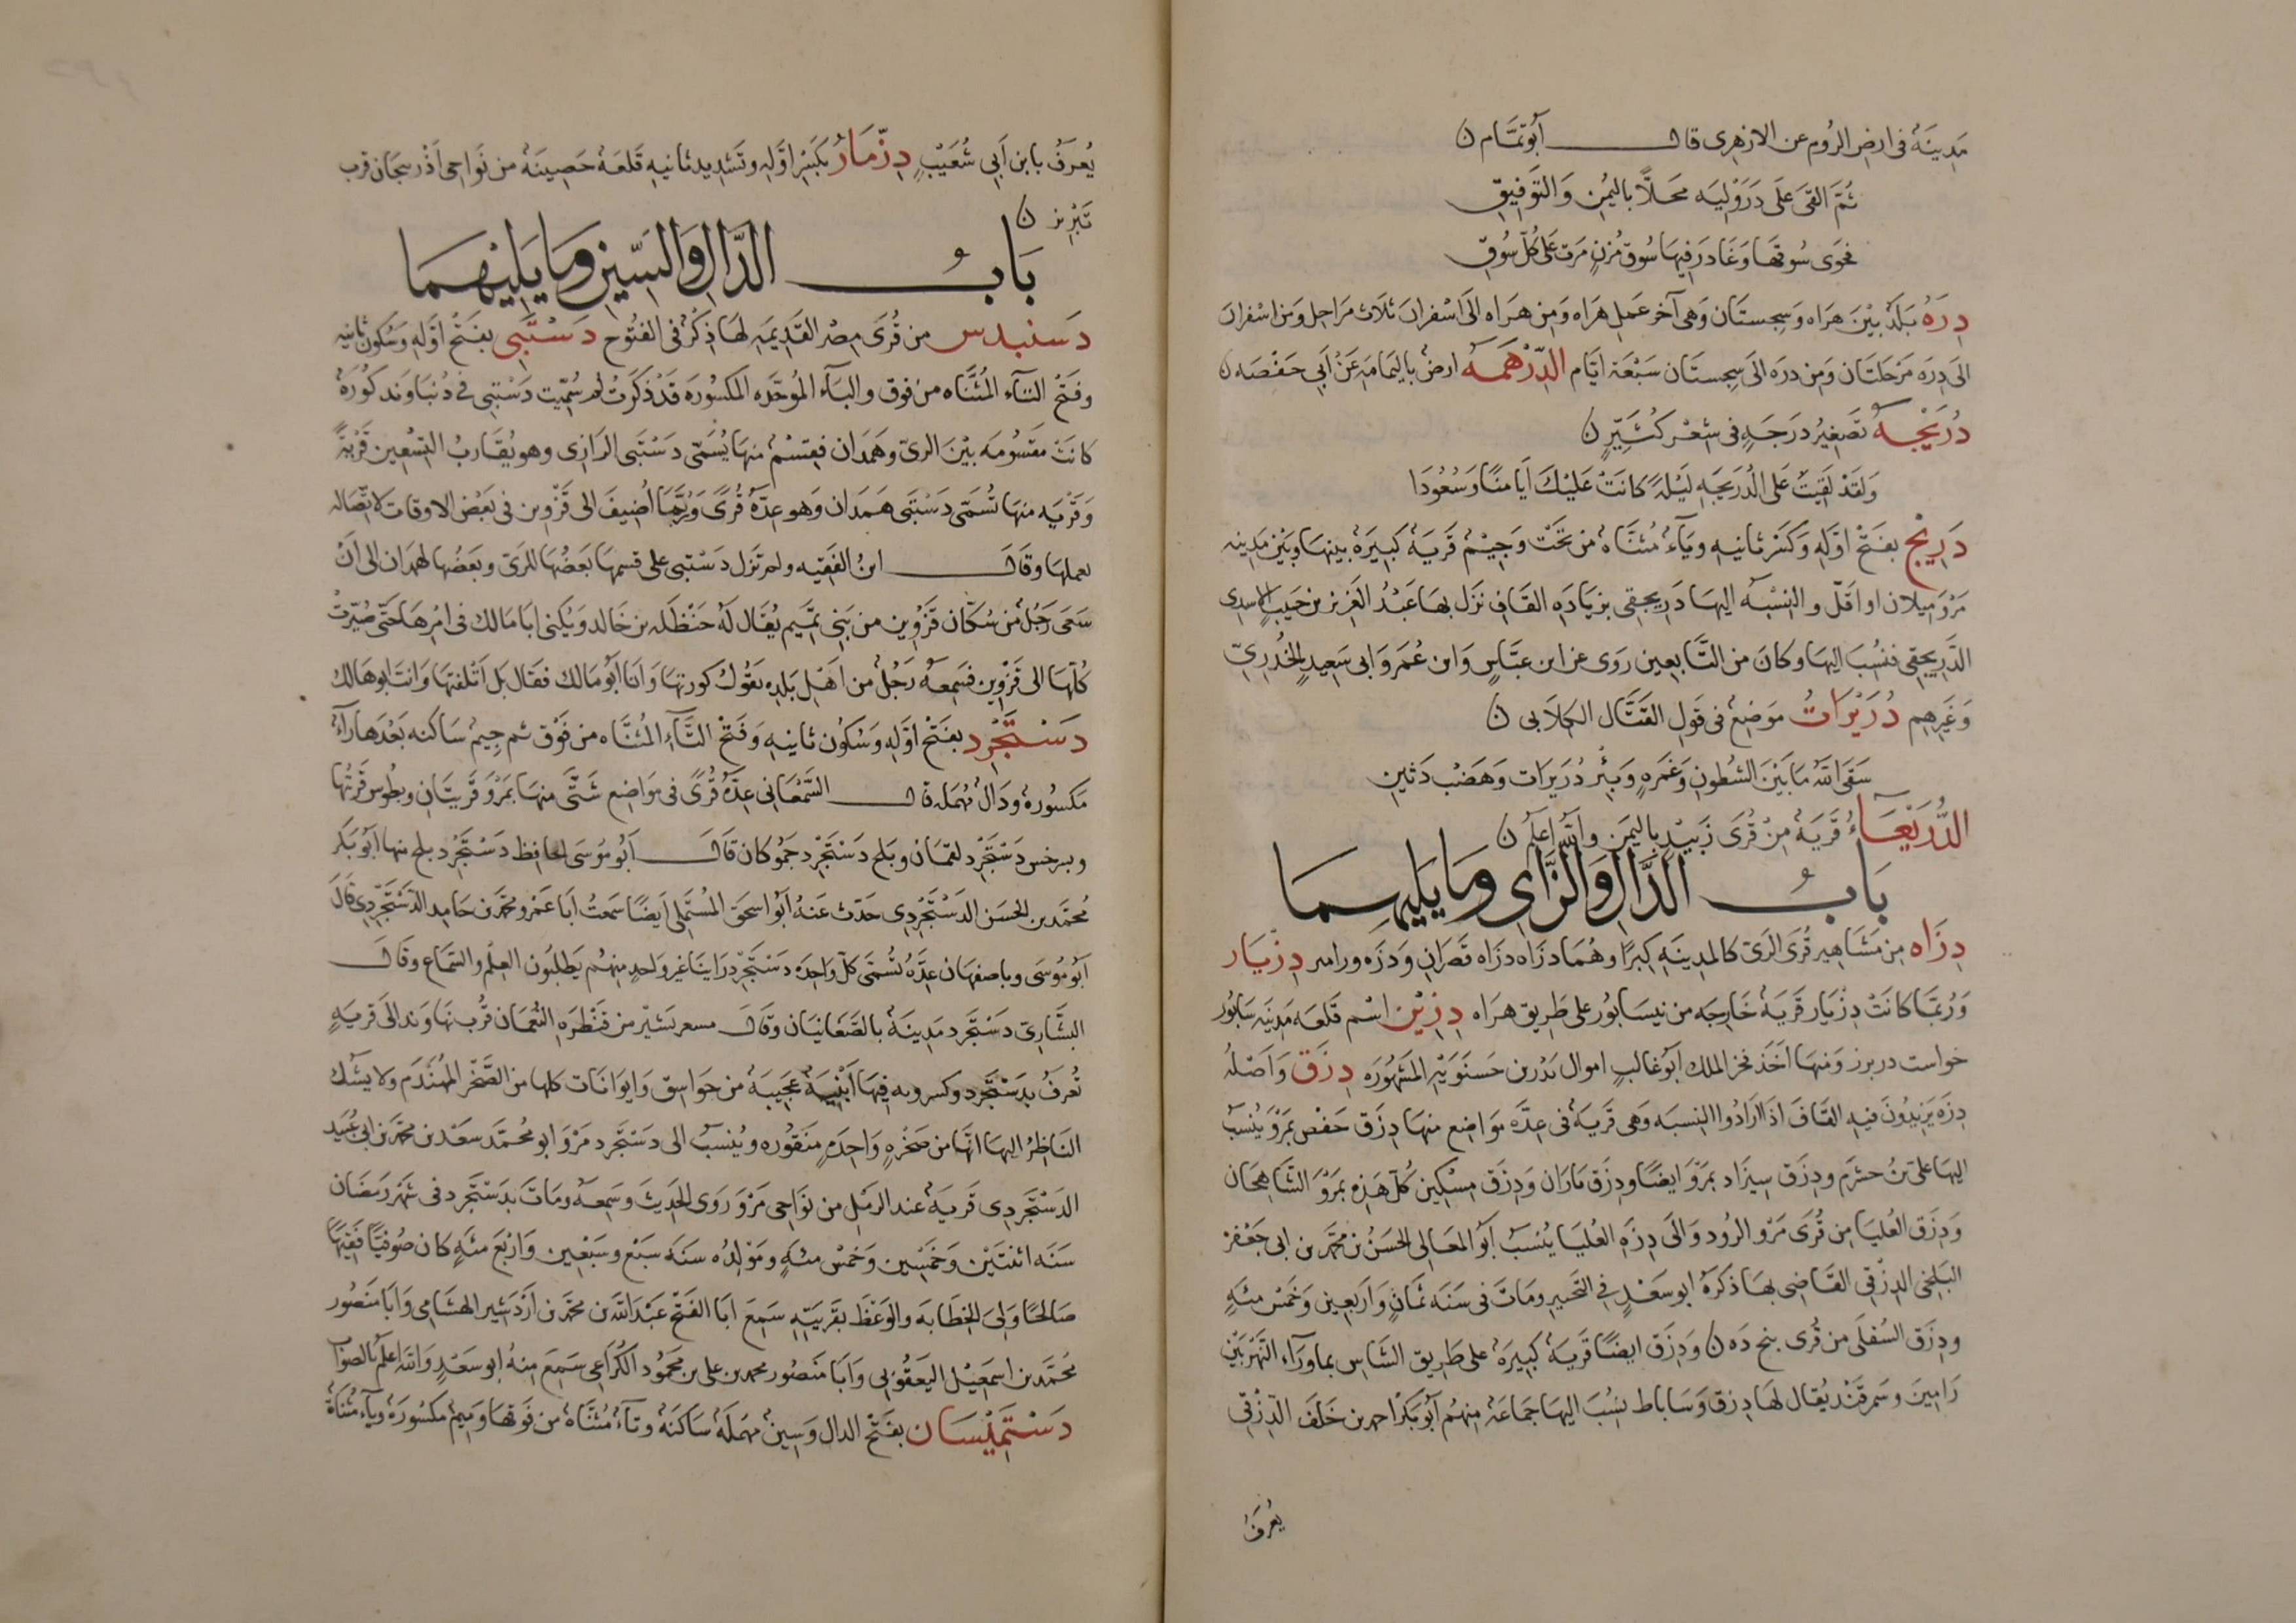 مَدِينَةٌ فى ارض الرُوم عن الازهرى قال أبو تمَّام ن
ثُمَّ القَى عَلَى دَرَوْلِيَه محَلًّا باليُمْنِ وَالتوَفِيقِ
فحَوَى سُوقهَا وَغَادَرَ فيهَا سُوق مُزنٍ مَرت عَلَى كُلّ سُوقِ
دِرَهُ بَلَدٌ بيْنَ هَرَاه وَسِجِستَان وَهى آخر عَمِل هَراه وَمِن هَرَاه الَى اسْفران ثلَاث مَرَاحِل وَمن اسْفران
الى دِرَه مَرْحَلتَان وَمِن درَه الى سِجِستَان سَبْعَة ايَّام الدِّرْهَمَهُ ارضٌ باليمَامَة عَنْ أَبِي حَفْصَه ن
دُرَيْجَه تَصَغِيرُ دَرَجَهٍ فى شِعْر كُثيِّرٍ ن
وَلقَدْ لَقِيتُ عَلَى الدُّرَيجَهِ لَيْلَةً كانَتْ عَلَيْكَ أَيَامِنًا وَسُعُودَا
دَرِيْج بفَتْح اوَّلِهِ وَكَسْر ثانِيهِ وَيَاءٌ مُثنَّاهٌ من تَحْتَ وَجِيْمٌ قَريَهٌ كَبِيرَهٌ بينهَا وبَيْن مَدِينه
مَرْوَ مِيلان او اقَلّ والنِسْبَه اليهَا دَرِيجقِى بزيَادَهِ القَافِ نَزَل بهَا عَبْدُ العَزيز بن حَبِيب الاسدى
الدَّرِيجقِى فنسُبَ اليهَا وكانَ من التَّابعِين رَوَى عن ابن عبَّاسٍ وَابن عُمَر وَابى سَعِيدٍ الخُدْرِىّ
وَغَيرِهم دُرَيْرَاتُ مَوْضِعٌ فى قَولِ القتَّال الكِلَابى ن
سَقَى اللهُ مَا بَيْنَ الشُطُونِ وَغَمرهٍ وَبئر دُرَيرات وَهَضْب دَثِينِ
الدُّرَيْعَاءُ قَريَهٌ مِنْ قُرَى زَبِيْدٍ باليمَن واللهُ اعلمُ ن
بَابُ الدَّالِ وَالزَّاى وَمَا يَلِيهِمَا
دِزَاه مِن مَشَاهِير قُرَى الرَىّ كالمدِينَهِ كِبَرًا وهُمَا دزَاه دزَاه قصَران وَدزَه ورامر دِزْبَار
وَرُبمَّا كانَتْ دِزْبَار قَريَهٌ خَارجَه من نيسَابُور على طَريق هَرَاه دِزْبَن اسْم قَلعَه مَدِينَه سَابُور
خواست دربز وَمنهَا اخَذَ فخر الملك أبو غالبٍ اموال بَدْر بن حَسنَوَيْهِ المَشْهُورَه دِزَق وَأصَلهُ
دِزَه يَزيدُونَ فيهِ القَافَ اذَا ارَادُوا النِسبَه وَهى قَريَهٌ فى عِدَّه مَوَاضِع منهَا دِزَق حَفْص بمَرْوَ يُنسَبُ
اليهَا على بن خشرَم ودِزَق سِيزَاد بمَرْوَ ايضًا ودِزَق مَارَان وَدِزَق مِسْكِين كُلّ هَذِهِ بمَرْوَ الشَّاهِجَان
وَدِزَق العُليَا مِن قُرَى مَرْو الرُود وَالَى دِزَهِ العُليَا يُنسَبُ أبو المعَالى الحسَنُ بن محمَّد بن ابى جَعْفر
البَلخى الدِزَقى القَاضِى بهَا ذكَرَهُ ابو سَعْدٍ فِى التَحبير وَمَاتَ فى سَنَه ثَمَانٍ وَاَربَعِين وَخَمْس مئهٍ
وَدِزَق السُفلَى من قُرى بنج دَه ن وَدِزَق ايضًا قَريَهٌ كَبِيرَهٌ على طَرِيق الشَاس بمَا وَرَآء النَهْر بَيْن
رَامِينَ وسَمرقَنْد يُقال لهَا دِزَق وَسَاباط يُنسَبُ اليهَا جَمَاعَه مِنهُم أبو بَكرْ احمد بن خَلَفَ الدِزَقِىّ
يُعرَفُ
يُعرَفُ بابن أبي شُعَيْبٍ دِزّمَارُ بكَسْر اوَّلِهِ وتَشدِيد ثانيه قَلعَهٌ حَصِينَهٌ من نَواحِى اَذْربيجَان قرب
تَبْرِيز ن
بَابُ الدَّالِ وَالسِّينِ وَمَا يَلِيْهِمَا
دَسنبدس من قُرَى مِصْر القَدِيمَهِ لهَا ذِكْرٌ فى الفتُوح دَسْتَبَى بفَتْح اوّلِهِ وَسُكون ثانِيه
وفَتْح التَاء المُثنَّاه من فوق والبَآء المُوَحّدَه المكسُورَه قَدْ ذَكرَت لم سُمّيت دَسْتبى فى دُنبَاوَند كُورَهٌ
كانَتْ مَقسُومَه بيْنَ الرىّ وَهَمَدان فقِسْمٌ منهَا يُسَمّى دَسْتبَى الرَازى وهو يُقَاربُ التِسْعِين قَرْيَةً
وَقَرْيَه منهَا تُسَمّى دَسْتَبَى هَمَدَان وَهو عِدَّهُ قُرًى وَرُبَّمَا اُضِيفَ الى قَزْوين فى بَعْض الاوقات لاتصَالِه
بعملهَا وقَالَ ابنُ الفَقِيه ولم تَزَل دَسْتبى على قسمهَا بَعْضُهَا للرَىّ وبعَضُها لهمَدان الى اَنْ
سَعَى رَجُلٌ مِن سُكّان قَزْوِين من بَنِى تمِيم يُقَال لَهُ حَنْظَلَه بن خَالد وَيُكنى ابَا مَالك فى امْرهَا حَتّى صُيّرتْ
كُلّهَا الى قَزْوِين فسَمِعَهُ رَجُلٌ من اهْل بَلدِه يَقُول كورتهَا وَانَا أبو مَالك فقَال بَل اَتلفتهَا وَانتَ ابو هَالك
دَسْتَجْرِد بفَتْح اوّلهِ وَسُكُون ثانيهِ وَفَتْح التَّآءِ المُثنَّاه من فَوْق ثم جِيمٌ سَاكنه بَعْدَهَا رَآءٌ
مَكسُورهٌ ودَالٌ مُهمَله قال السَّمْعَانى عِدّهُ قُرًى فى مَواضِع شتَّى منهَا بمَرْوَ قَريَتَانِ وبطُوس قَريتُها
وبسرخس دَسْتَجْرِد لقمَان وبَلخ دَسْتَجْرِد جمُوكان قَالَ أبُو مُوسَى الحَافِظ دَسْتَجْرِد بلخ منها أبُو بَكَر
محُمَّد بن الحَسَن الدَسْتَجْرِدى حَدّث عَنهُ أبُو اسحَق المُسْتَملِى ايَضًا سَمعتُ ابَا عَمْرو محمَّد بن حَامِد الدَسْتَجْرِدى قَالَ
أبُو مُوسَى وباصفهَان عِدَّهٌ تُسَمّى كلّ وَاحدَه دَسْتَجْرِد رَاينَا غير وَاحِدٍ مِنهُم يَطلُبُون العِلْم والسَّمَاع وقَالَ
البشَّارِىّ دَسْتَجْرِد مَدِينَهٌ بالصَّغَانيَان وقَالَ مسعر تَسِيْر من قنْطَرَه النُّعْمَان قُرْب نهَاوَند الَى قَريَهٍ
تُعرفُ بدَسْتَجْرِد وكسرويه فِيهَا اَبْنِيَهٌ عَجِيبَهٌ من جَوَاسِق وَايوَانَات كلهَا من الصَّخْر المُهَنْدَم ولا يَشُكّ
النَاظِرُ اليهَا انّهَا من صَخْرَهٍ وَاحِدَهٍ مَنقُورَه ويُنسَبُ الى دَسْتَجْرِد مَرْوَ ابو محُمَّد سعْد بن محمَّد بن ابى عُبَيد
الدَسْتَجْرِدى قَريَهٌ عند الرَمْلِ من نَوَاحِى مَرْوَ رَوَى الحَدِيثَ وَسَمِعَهُ ومَاتَ بدَسْتَجْرِد فى شهَر رَمَضَان
سَنَه اثنَتَيْن وَخَمْسِين وَخَمْس مئهٍ ومَوْلدُه سنَه سَبْع وسَبْعِين وَارْبَع مئهٍ كان صُوفيًّا فَقِيهًا
صَالحًا وَلِىَ الخِطَابَه والوَعْظَ بقَريَتِهِ سَمِعَ ابَا الفَتْح عَبْدَ الله بن محمَّد بن اَرْدَشير الهشَامى وَابَا مَنصُور
محُمَّد بن اسمَعِيْل اليَعقُوبى وَابَا مَنصُور محمد بن على بن محمُود الكُرَاعى سَمِعَ مِنهُ ابو سَعْدٍ وَاللهُ اعلمُ بالصَوَاب
دَسْتَمِيْسَان بفَتْح الدال وَسِينٌ مهمَلَهٌ سَاكنَهٌ وتآءٌ مُثنَّاهٌ من فَوقهَا وَمِيمٌ مكسُورَهٌ وَيآءٌ مُثنَّاهٌ